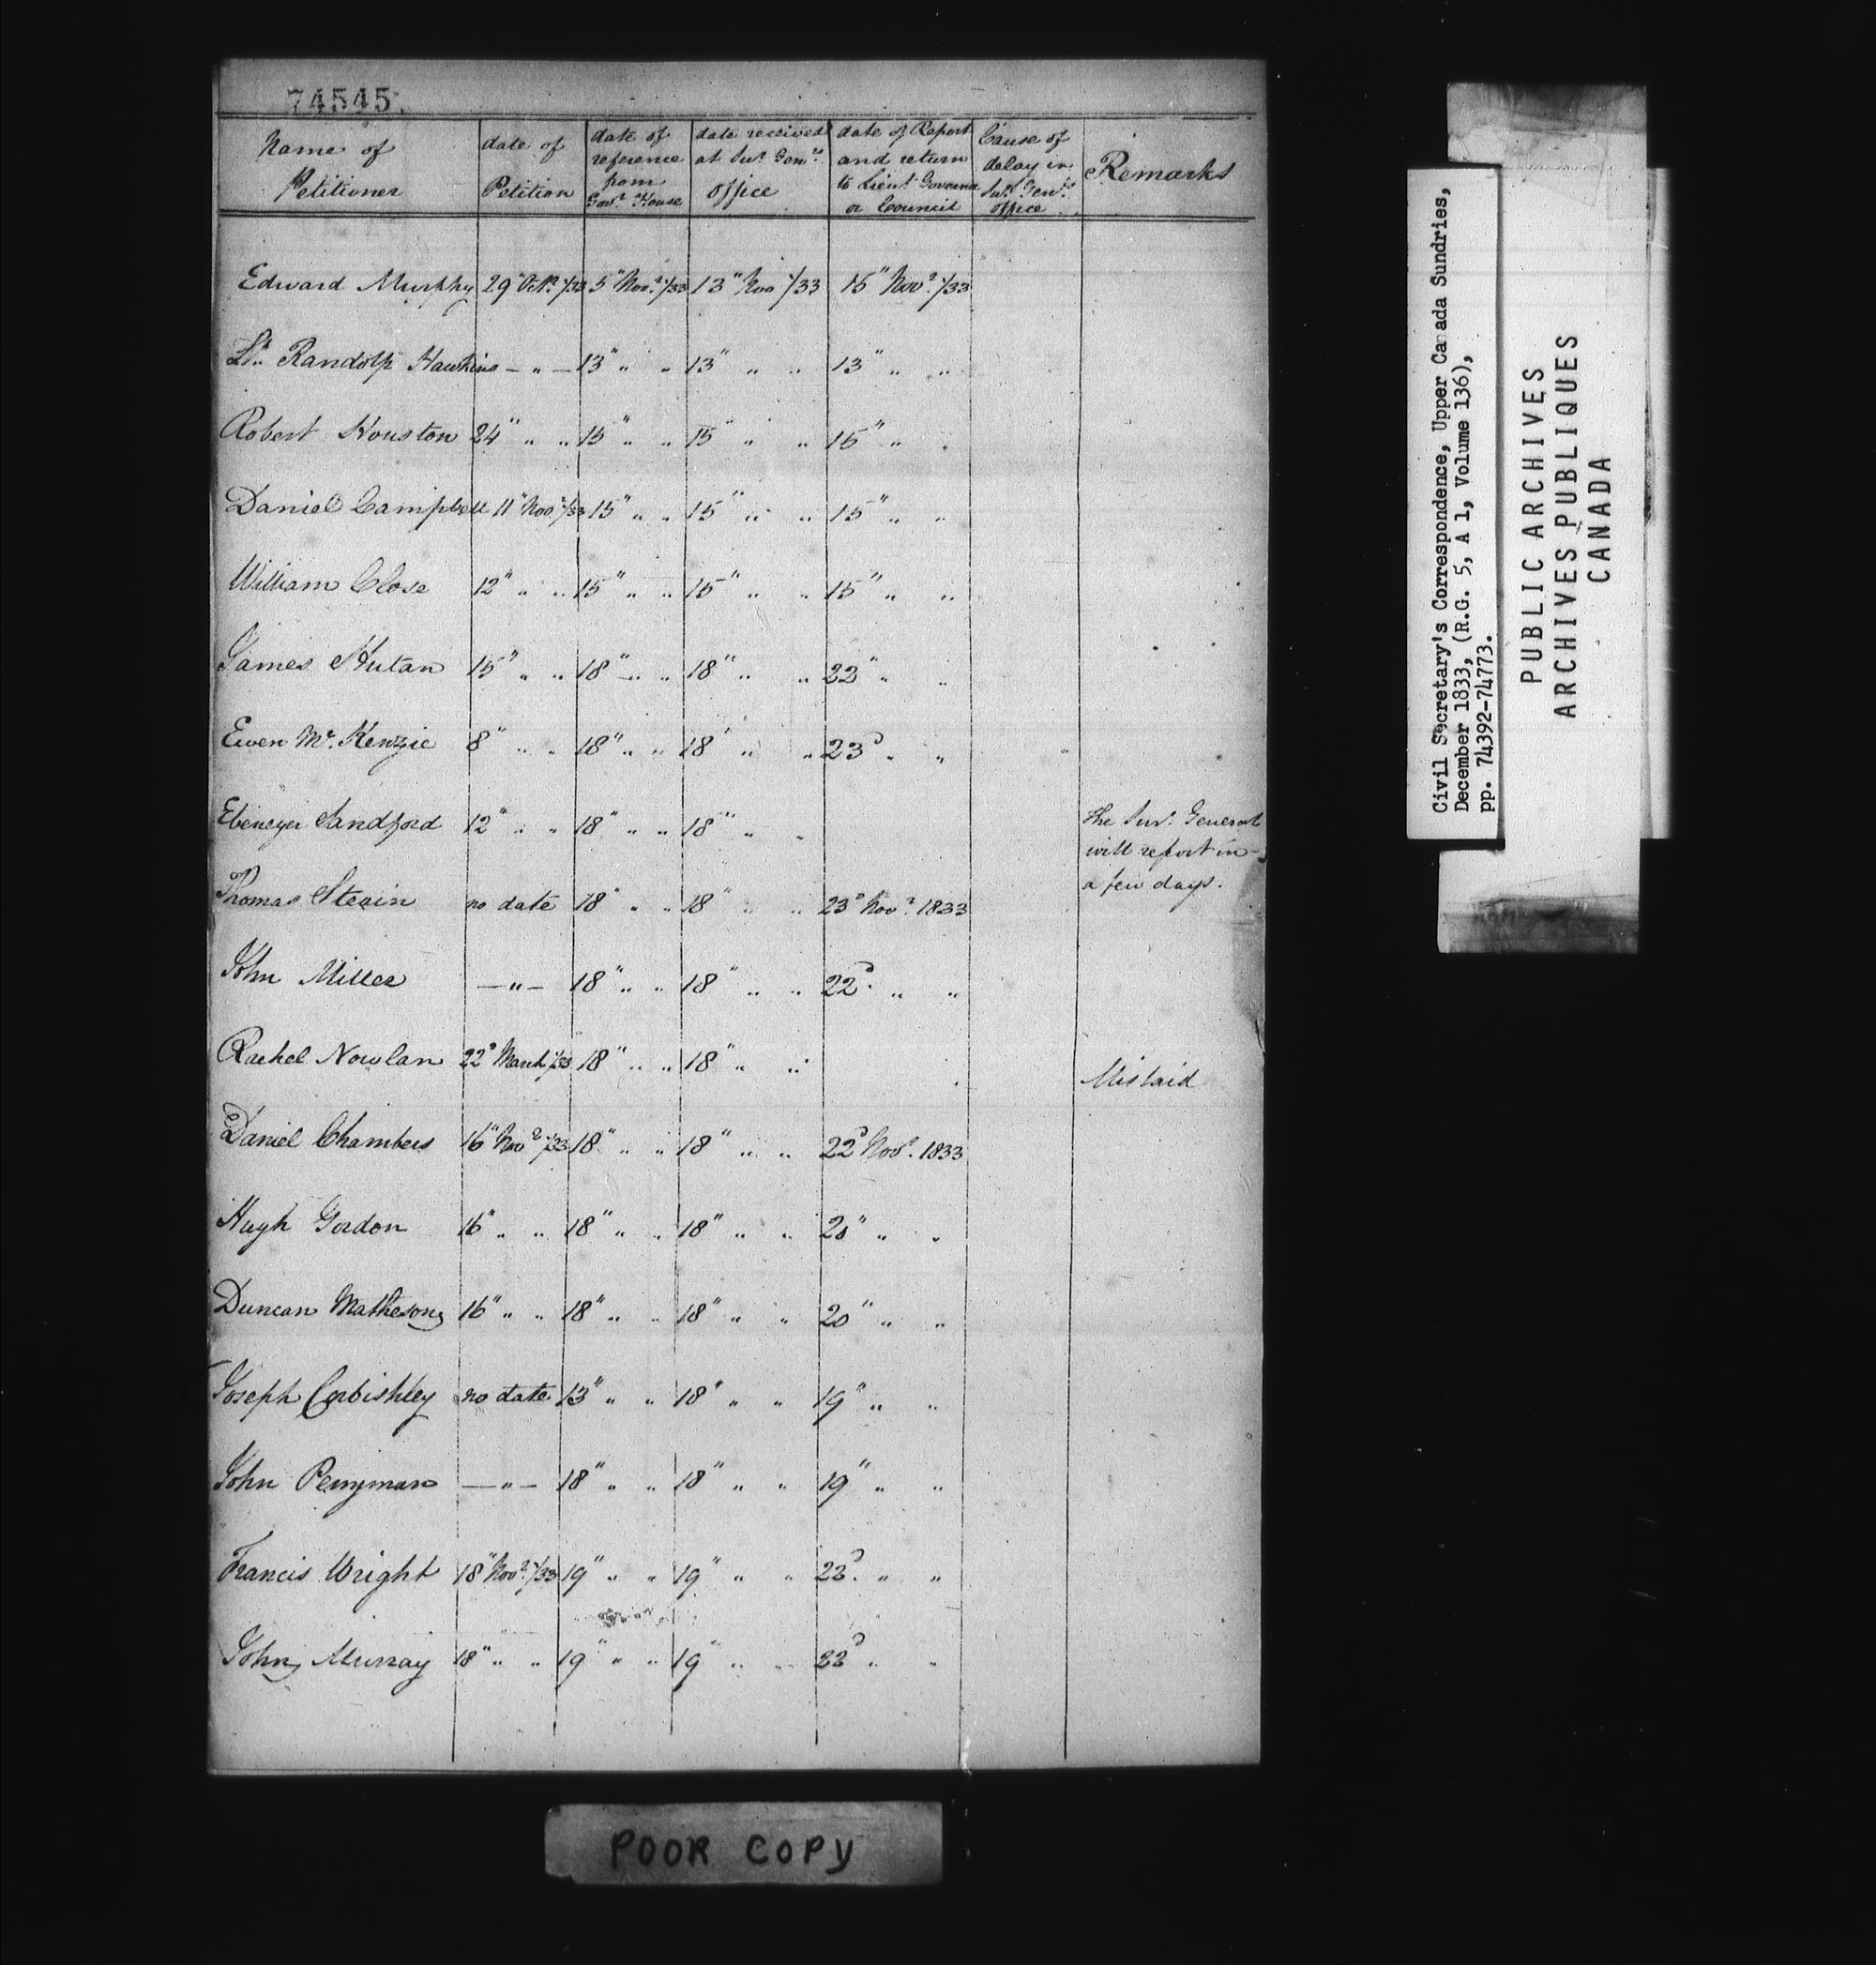 74545.
Name of Petitioner | date of Petition | date of reference from Govr. House | date received at Sur. Genls. office | date of Report and return to Lieut. Governor or Council | Cause of delay in Sur. Genls. office | Remarks
Edward Murphy | 29" Octr. /33 | 5" Novr. /33 | 13" Nov /33 | 15" Novr. /33
Lt. Randolp Hawkins | — " — | 13" " " | 13" " " | 13" " "
Robert Houston | 24" " " | 15" " " | 15" " " | 15" " "
Daniel Campbell | 11" Novr. /33 | 15" " " | 15" " " | 15" " "
William Close | 12" " " | 15" " " | 15" " " | 15" " "
James Hutan | 15" " " | 18" " " | 18" " " | 22" " "
Ewen Mc. Kenzie | 8" " " | 18" " " | 18" " " | 23d " "
Ebenezer Sandford | 12" " " | 18" " " | 18" " " | | | the Sur. General will report in a few days.
Thomas | no date | 18" " " | 18" " " | 23d Novr. 1833
John Miller | — " — | 18" " " | 18" " " | 22d. " "
Rachel Nowlan | 22d March /33 | 18" " " | 18" " " | | | Mislaid
Daniel Chambers | 16" Novr. /33 | 18" " " | 18" " " | 22d Novr. 1833
Hugh Gordon | 16" " " | 18" " " | 18" " " | 20" " "
Duncan Matheson | 16" " " | 18" " " | 18" " " | 20" " "
Joseph Corbishley | no date | 13" " " | 18" " " | 19" " "
John Perryman | — " — | 18" " " | 18" " " | 19" " "
Francis Wright | 18" Novr. /33 | 19" " " | 19" " " | 22d. " "
John Murray | 18" " " | 19" " " | 19" " " | 22d " "
Civil Secretary's Correspondence, Upper Canada Sundries,
December 1833, (R.G. 5, A 1, Volume 136),
pp. 74392-74773.
PUBLIC ARCHIVES
ARCHIVES PUBLIQUES
CANADA
POOR COPY